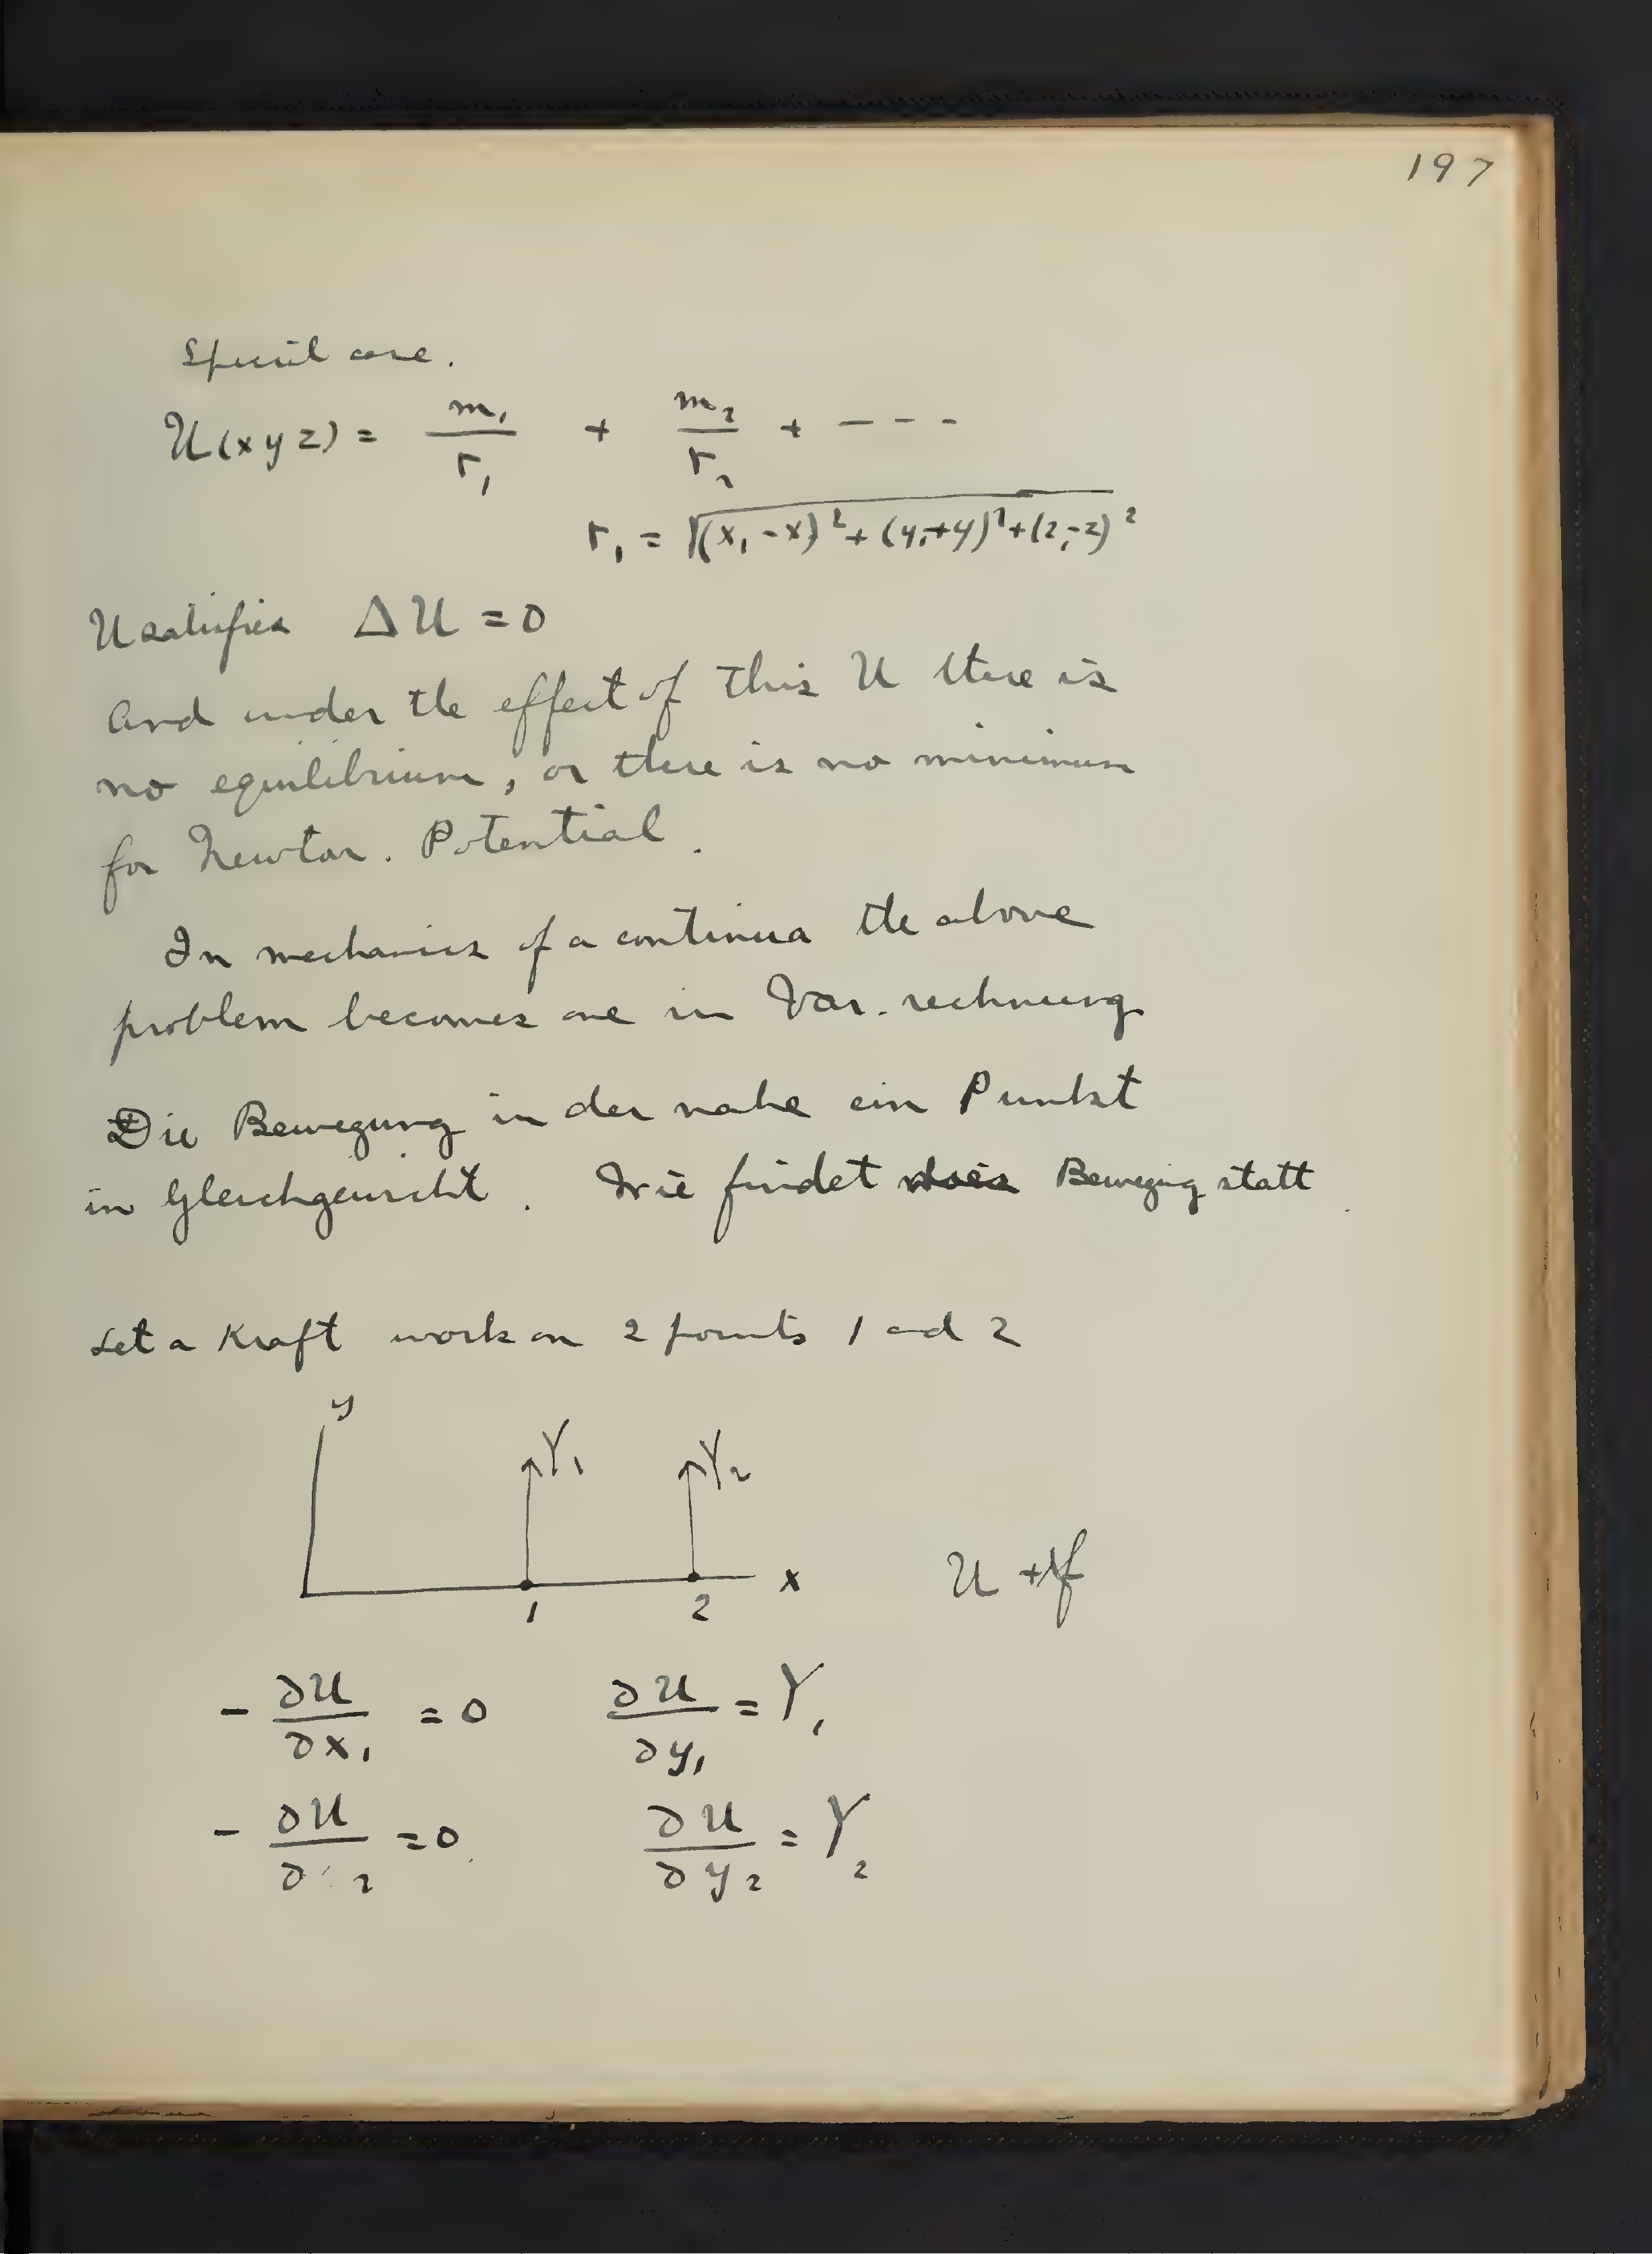 197
Special case.
U(x y z) = m₁/r₁ + m₂/r₂ + - - - -
r₁ = √((x₁ - x)² + (y₁ + y)² + (z₁ - z)²
U satisfies ΔU = 0
And under the effect of this U there is
no equilibrium, or there is no minimum
for Newton. Potential.
In mechanics of a continua the above
problem becomes one in Var. rechnung
Die Bewegung in der nahe ein Punkt
in Gleichgewicht. Wie findet Bewegung statt.
Let a Kraft work on 2 points 1 and 2
y
Y₁ Y₂
x
1 2
U +
- ∂U/∂x₁ = 0 ∂U/∂y₁ = Y₁
- ∂U/∂ ₂ = 0 ∂U/∂y₂ = Y₂